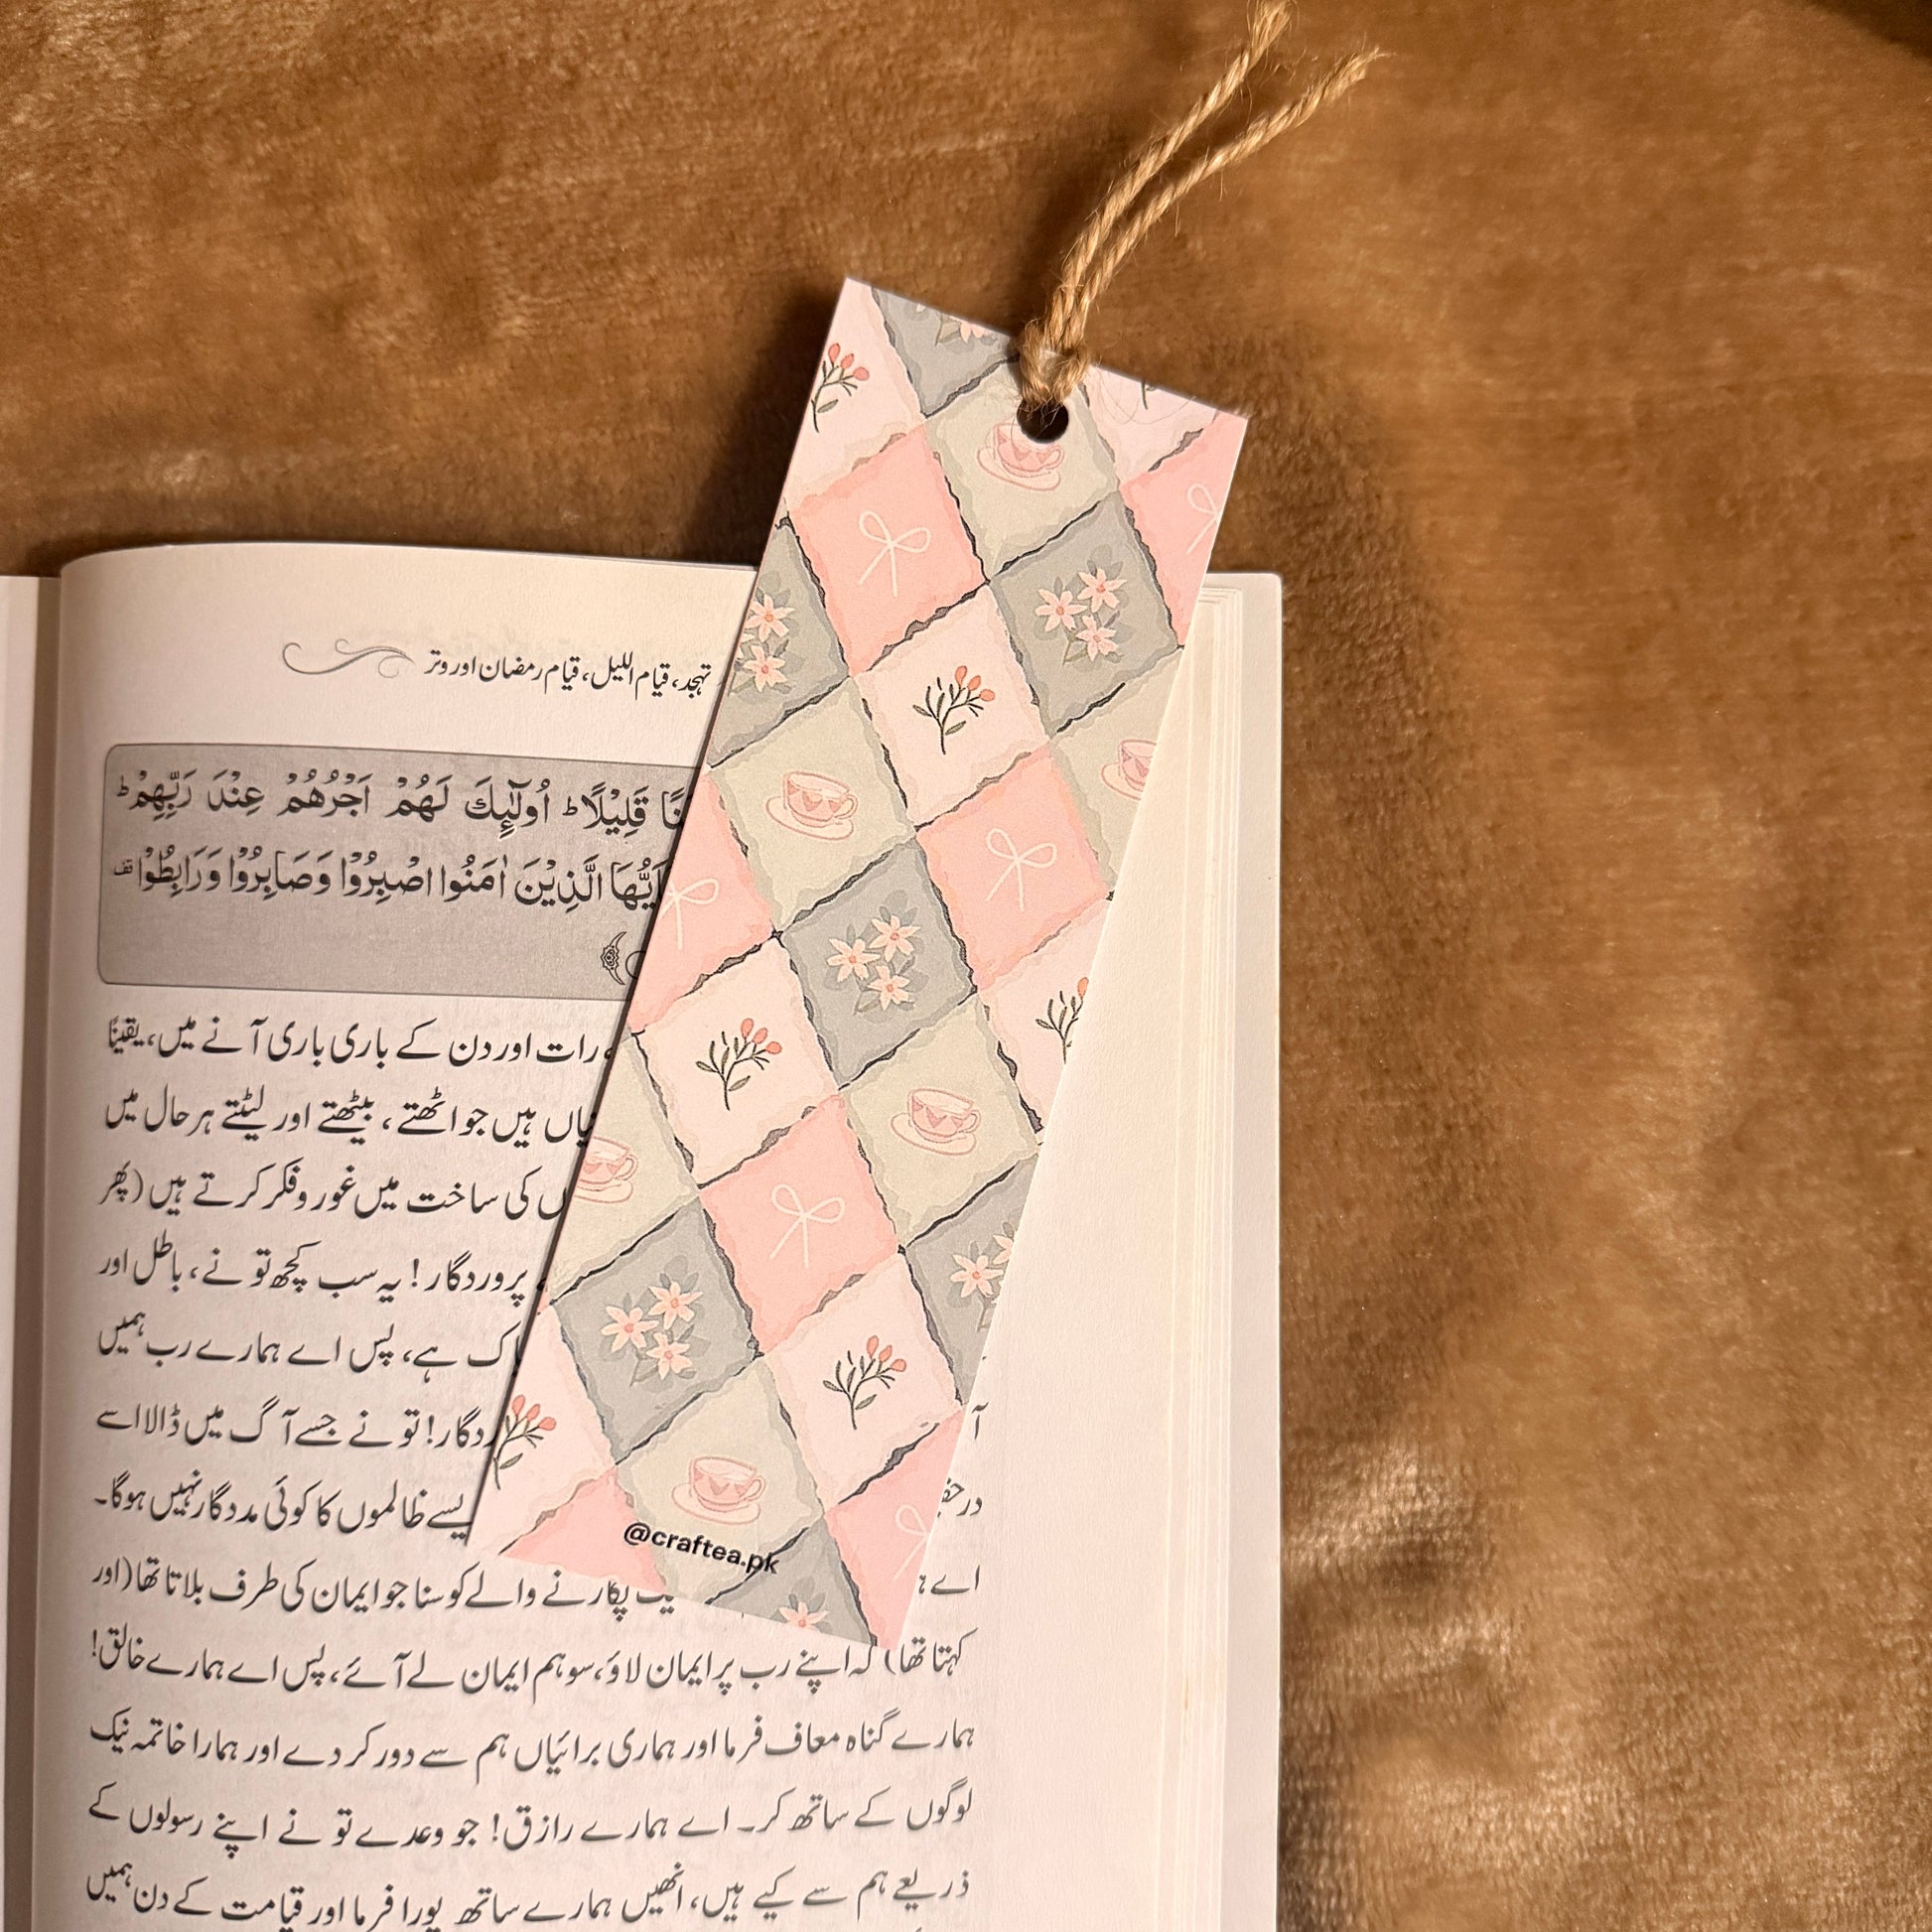 تہجد، قیام اللیل، قیام رمضان اور وتر
قَلِيْلًا ؕ اُولٰٓئِكَ لَهُمْ اَجْرُهُمْ عِنْدَ رَبِّهِمْ ؕ
الَّذِيْنَ اٰمَنُوا اصْبِرُوْا وَصَابِرُوْا وَرَابِطُوْا قف
رات اور دن کے باری باری آنے میں، یقینًا
ہیں جو اٹھتے، بیٹھتے اور لیٹتے ہر حال میں
کی ساخت میں غور و فکر کرتے ہیں (پھر
پروردگار! یہ سب کچھ تو نے، باطل اور
ہے، پس اے ہمارے رب ہمیں
تو نے جسے آگ میں ڈالا اسے
ظالموں کا کوئی مددگار نہیں ہوگا۔
اے پکارنے والے کو سنا جو ایمان کی طرف بلاتا تھا (اور
کہتا تھا) کہ اپنے رب پر ایمان لاؤ، سو ہم ایمان لے آئے، پس اے ہمارے خالق!
ہمارے گناہ معاف فرما اور ہماری برائیاں ہم سے دور کر دے اور ہمارا خاتمہ نیک
لوگوں کے ساتھ کر۔ اے ہمارے رازق! جو وعدے تو نے اپنے رسولوں کے
ذریعے ہم سے کیے ہیں، انھیں ہمارے ساتھ پورا فرما اور قیامت کے دن ہمیں
@craftea.pk